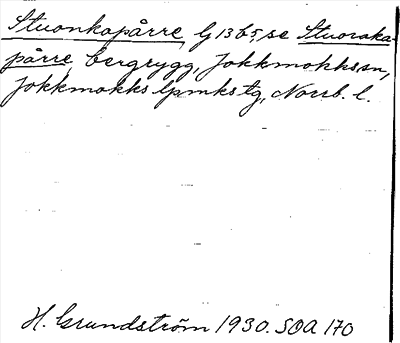 Stuonkapårre, G 13 b 5, se Stuoraka-
pårre, bergrygg, Jokkmokks sn,
Jokkmokks lpmks tg, Norrb. l.
H. Grundström 1930. SOA 170